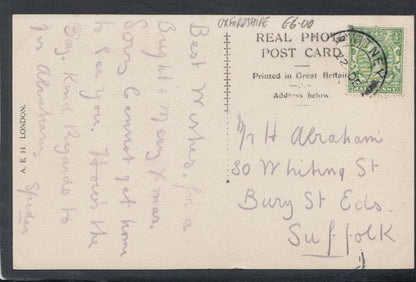 OXFORDSHIRE £6.00
REAL PHOTO
POST CARD.
Printed in Great Britain
Address below.
WITNEY
A. E. H LONDON.
Best Wishes for a
Bright & Merry Xmas.
Sorry cannot get home
to see you. How's the
Boy. Kind Regards to
Mr Abraham.
Spider
Mr H Abraham
30 Whiting St
Bury St Eds.
Suffolk